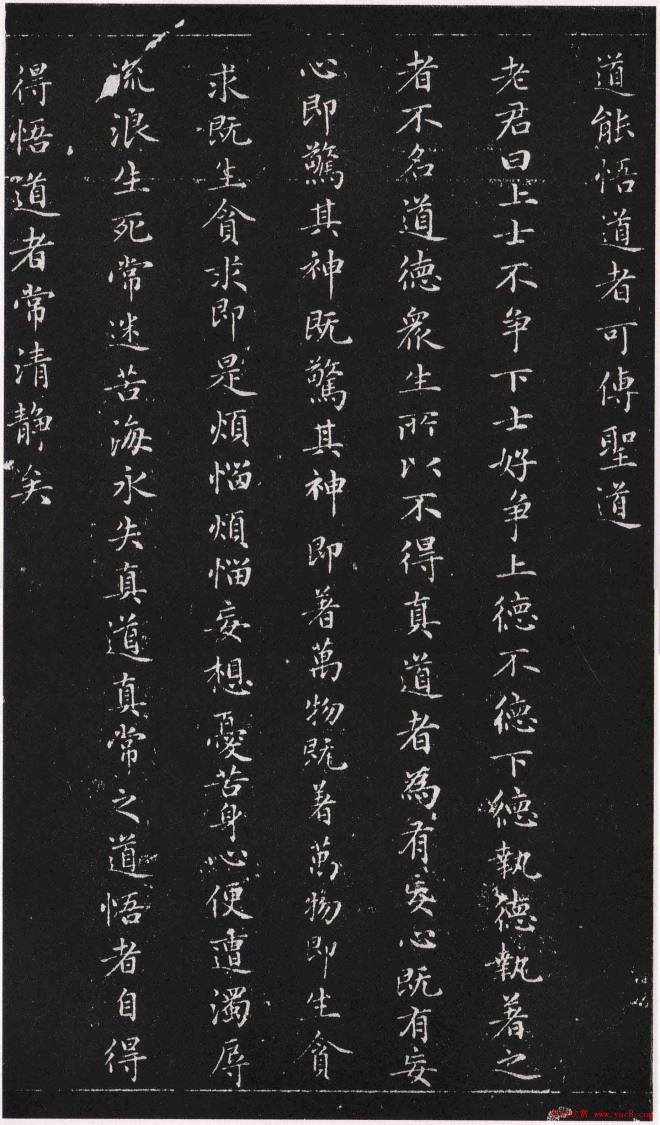 道能悟道者可傳聖道
老君曰上士不争下士好争上德不德下德執德執著之
者不名道德衆生所以不得真道者為有妄心既有妄
心即驚其神既驚其神即著萬物既著萬物即生貪
求既生貪求即是煩惱煩惱妄想憂苦身心便遭濁辱
流浪生死常迷苦海永失真道真常之道悟者自得
得悟道者常清静矣
www.yac8.com